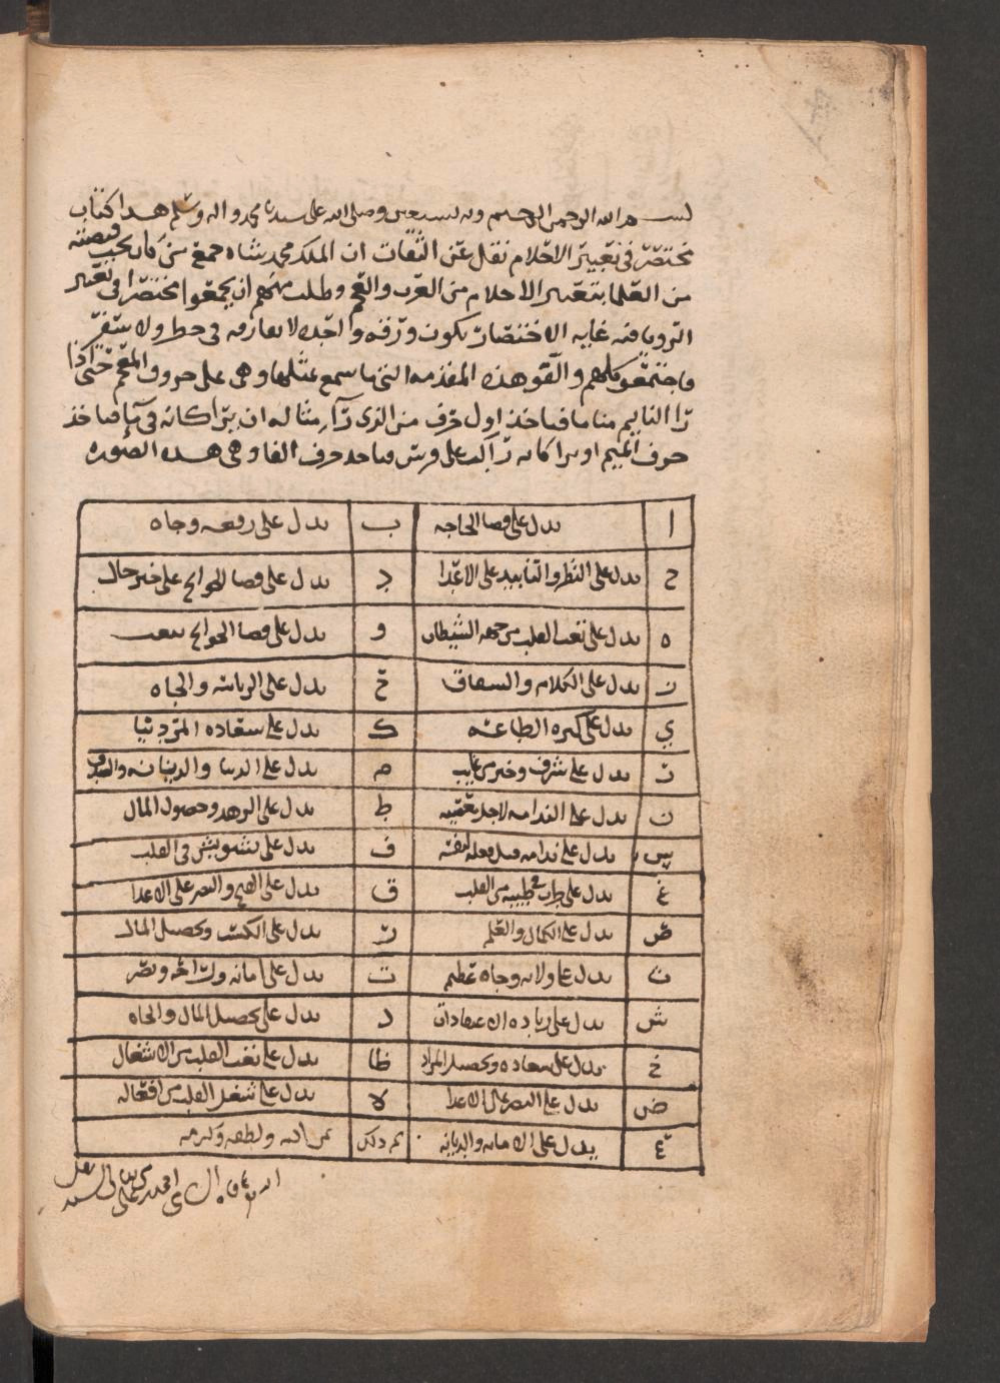 بسم الله الرحمن الرحيم وبه نستعين وصلى الله على سيدنا محمد واله وسلم هذا كتاب
مختصر في تعبير الاحلام نقل عن الثقات ان الملك محمد شاه جمع من كان تحت قبضته
من العلما بتعبير الاحلام من العرب والعجم وطلب منهم ان يجمعوا مختصرا في تعبير
الرويا فيه غايه الاختصار يكون ورقه واحده لا تفارقه في حط ولا سفر
فاجتمعو كلهم والفو هذه المقدمه التي ما سمع بمثلها وهي على حروف المعجم حتى اذا
را النايم مناما فياخذ اول حرف من الذي راه مثاله ان يرا كانه في ما فياخذ
حرف الميم او يرا كانه راكب على فرس فياخد حرف الفا وهي هذه الصوره
ا يدل على قضا الحاجه ب يدل على رفعه وجاه
ج يدل على النظر والتاييد على الاعدا د يدل على قضا الحوايج على خير حال
ه يدل على تعب القلب من جهه الشيطان و يدل على قضا الحوايج بتعب
ز يدل على الكلام والسقاق ح يدل على الرياسه والجاه
ي يدل على كثره الطاعه ك يدل على سعاده
يدل على شرف وخبر من غايب م يدل على الدنيا والديانه
ن يدل على الندامه لاجل ط يدل على الزهد وحصول المال
س يدل على ندامه فعله ف يدل على تشويش في القلب
غ يدل على القلب ق يدل على الفتح والنصر على الاعدا
ص يدل على الكمال والعلم ر يدل على الكسب وتحصيل المال
ث يدل على ولايه وجاه عظيم ت يدل على امانه وراحه ونصر
ش يدل على زياده الاعتقادات ذ يدل على تحصيل المال والجاه
خ يدل على سعاده وتحصيل المراد ظا يدل على تعب القلب من الاشغال
ض يدل على النصر على الاعدا لا يدل على شغل القلب من افعاله
ع يدل على الامانه والديانه تم ذلك